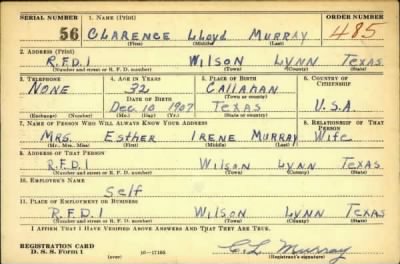 SERIAL NUMBER 1. NAME (Print) ORDER NUMBER
56 CLARENCE LLOYD MURRAY 485
(First) (Middle) (Last)
2. ADDRESS (Print)
R.F.D.1 WILSON LYNN TEXAS
(Number and street or R. F. D. number) (Town) (County) (State)
3. TELEPHONE 4. AGE IN YEARS 5. PLACE OF BIRTH 6. COUNTRY OF CITIZENSHIP
NONE 32 CALLAHAN
DATE OF BIRTH (Town or county)
DEC. 10 1907 TEXAS U.S.A.
(Exchange) (Number) (Mo.) (Day) (Yr.) (State or country)
7. NAME OF PERSON WHO WILL ALWAYS KNOW YOUR ADDRESS 8. RELATIONSHIP OF THAT PERSON
MRS. ESTHER IRENE MURRAY WIFE
(Mr., Mrs., Miss) (First) (Middle) (Last)
9. ADDRESS OF THAT PERSON
R.F.D.1 WILSON LYNN TEXAS
(Number and street or R. F. D. number) (Town) (County) (State)
10. EMPLOYER'S NAME
Self
11. PLACE OF EMPLOYMENT OR BUSINESS
R.F.D.1 WILSON LYNN STATE
(Number and street or R. F. D. number) (Town) (County) (State)
I AFFIRM THAT I HAVE VERIFIED ABOVE ANSWERS AND THAT THEY ARE TRUE.
REGISTRATION CARD
D. S. S. Form 1 (over) 16—17105 C.L. Murray
(Registrant's signature)